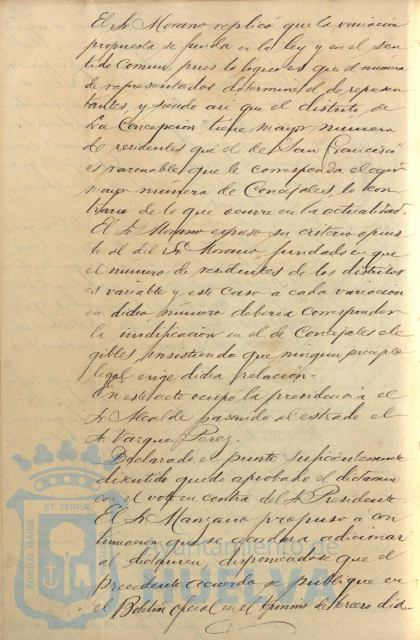 El Sr. Morano replicó que la variación
propuesta se funda en la ley y en el sen-
tido comun, pues lo logico es que el numero
de representados determine el de represen
tantes, y siendo así que el distrito de
"La Concepcion" tiene mayor numero
de residentes que el de "San Francisco"
es razonable que le corresponda el
mayor numero de Concejales, lo con
trario de lo que ocurre en la actualidad.
El Sr. expuso su criterio opues
to al del Sr. Morano, fundado en que
el número de residentes de los distritos
es variable y en este caso a cada variacion
en dicho número deberia corresponder
la modificacion en el de Concejales ele
gibles, insistiendo que ningun precepto
legal exige dicha relación.
En este acto ocupó la presidencia el
Sr. Alcalde pasando al estrado el
Sr. Vazquez Perez.
Declarado el punto suficientemente
discutido quedo aprobado el dictamen
con el voto en contra del Sr. Presidente
El Sr. Manzano propuso á con
tinuacion que se acordara adicionar
al dictamen, disponiendose que el
precedente acuerdo se publique en
el Boletin oficial en el termino de tercero dia
PORTUS MARIS ET TERRÆ CUSTODIA
Ayuntamiento de
HUELVA